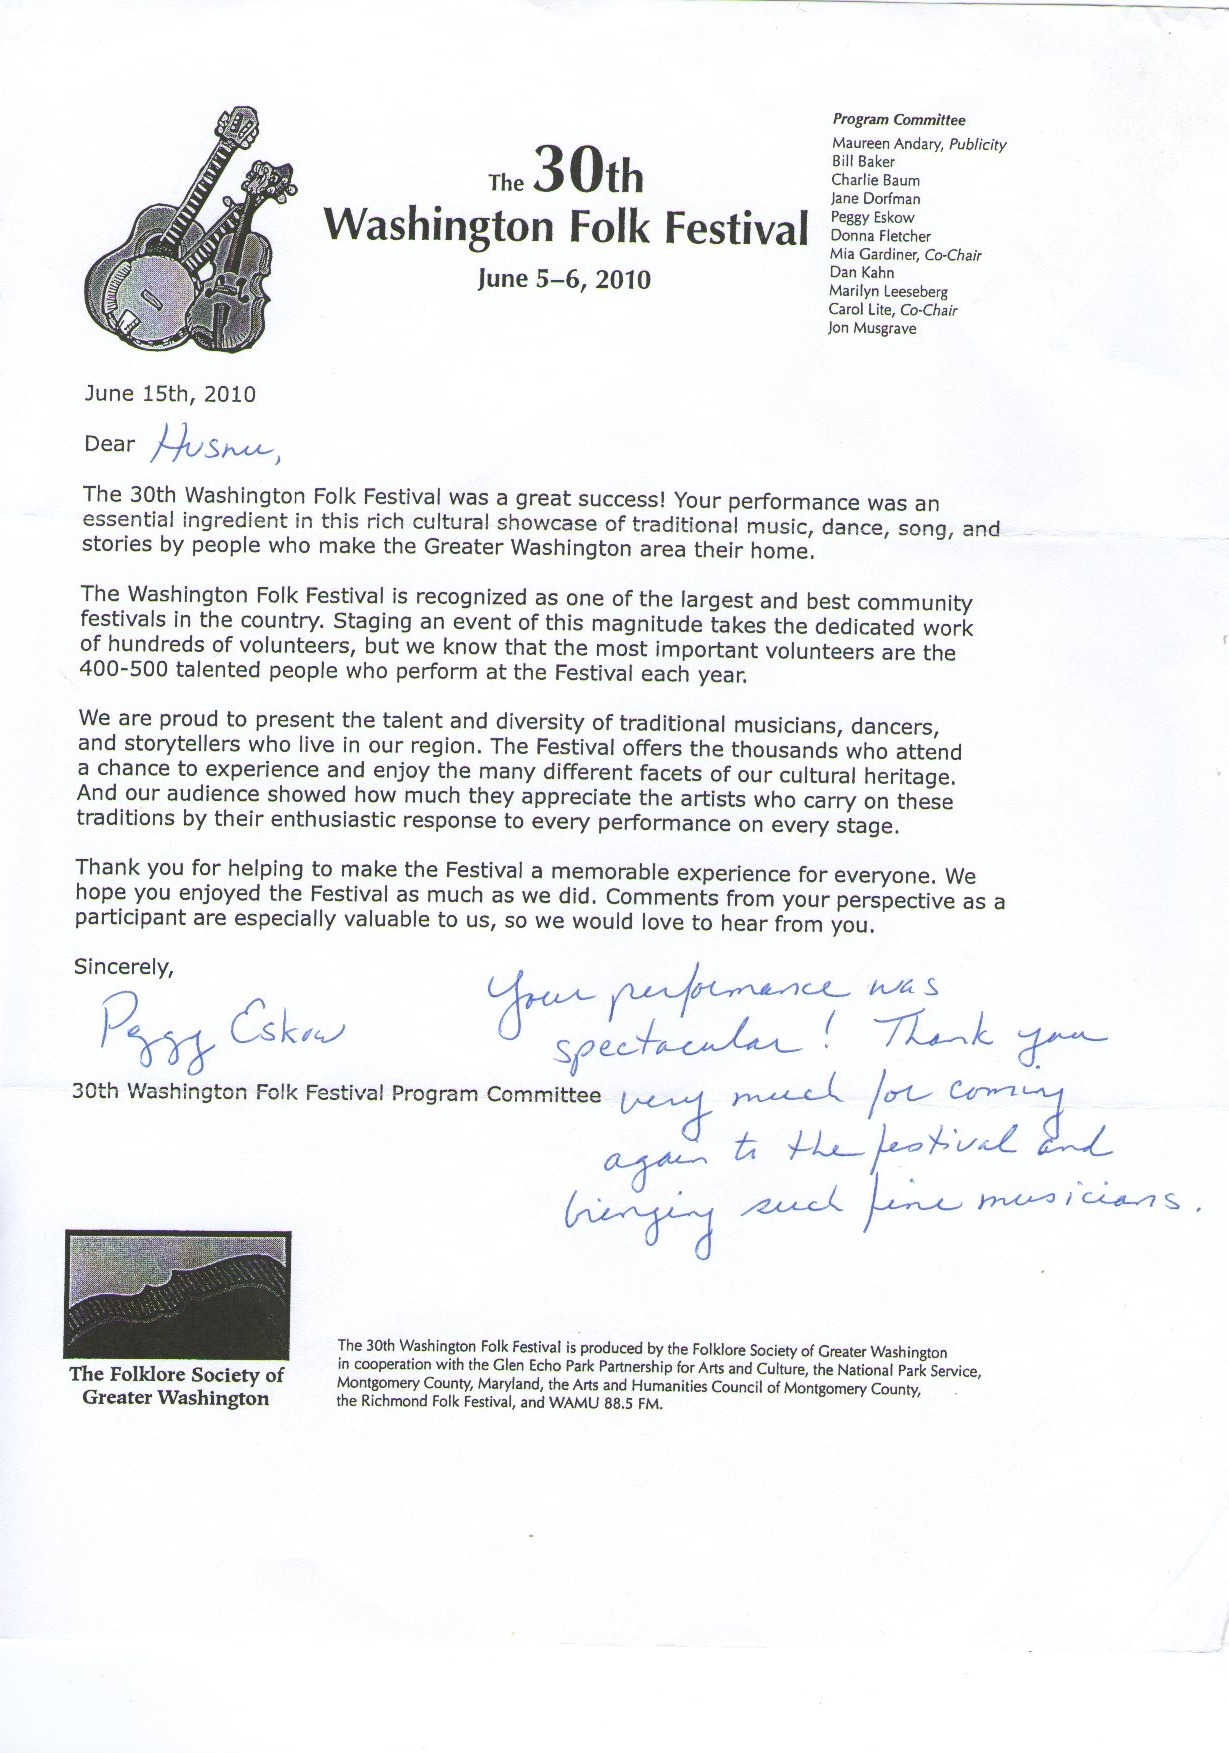 The 30th
Washington Folk Festival
June 5–6, 2010
Program Committee
Maureen Andary, Publicity
Bill Baker
Charlie Baum
Jane Dorfman
Peggy Eskow
Donna Fletcher
Mia Gardiner, Co-Chair
Dan Kahn
Marilyn Leeseberg
Carol Lite, Co-Chair
Jon Musgrave
June 15th, 2010
Dear Husnu,
The 30th Washington Folk Festival was a great success! Your performance was an
essential ingredient in this rich cultural showcase of traditional music, dance, song, and
stories by people who make the Greater Washington area their home.
The Washington Folk Festival is recognized as one of the largest and best community
festivals in the country. Staging an event of this magnitude takes the dedicated work
of hundreds of volunteers, but we know that the most important volunteers are the
400-500 talented people who perform at the Festival each year.
We are proud to present the talent and diversity of traditional musicians, dancers,
and storytellers who live in our region. The Festival offers the thousands who attend
a chance to experience and enjoy the many different facets of our cultural heritage.
And our audience showed how much they appreciate the artists who carry on these
traditions by their enthusiastic response to every performance on every stage.
Thank you for helping to make the Festival a memorable experience for everyone. We
hope you enjoyed the Festival as much as we did. Comments from your perspective as a
participant are especially valuable to us, so we would love to hear from you.
Sincerely,
Peggy Eskow
30th Washington Folk Festival Program Committee
Your performance was
spectacular! Thank you
very much for coming
again to the festival and
bringing such fine musicians.
The Folklore Society of
Greater Washington
The 30th Washington Folk Festival is produced by the Folklore Society of Greater Washington
in cooperation with the Glen Echo Park Partnership for Arts and Culture, the National Park Service,
Montgomery County, Maryland, the Arts and Humanities Council of Montgomery County,
the Richmond Folk Festival, and WAMU 88.5 FM.